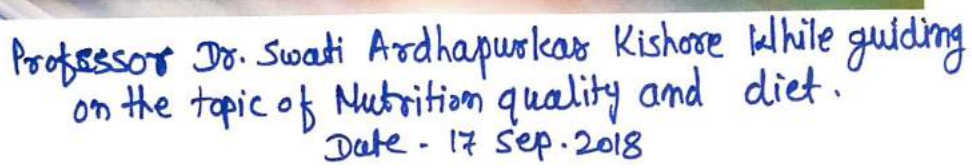 Professor Dr. Swati Ardhapurkar Kishore While guiding
on the topic of Nutrition quality and diet.
Date - 17 Sep. 2018